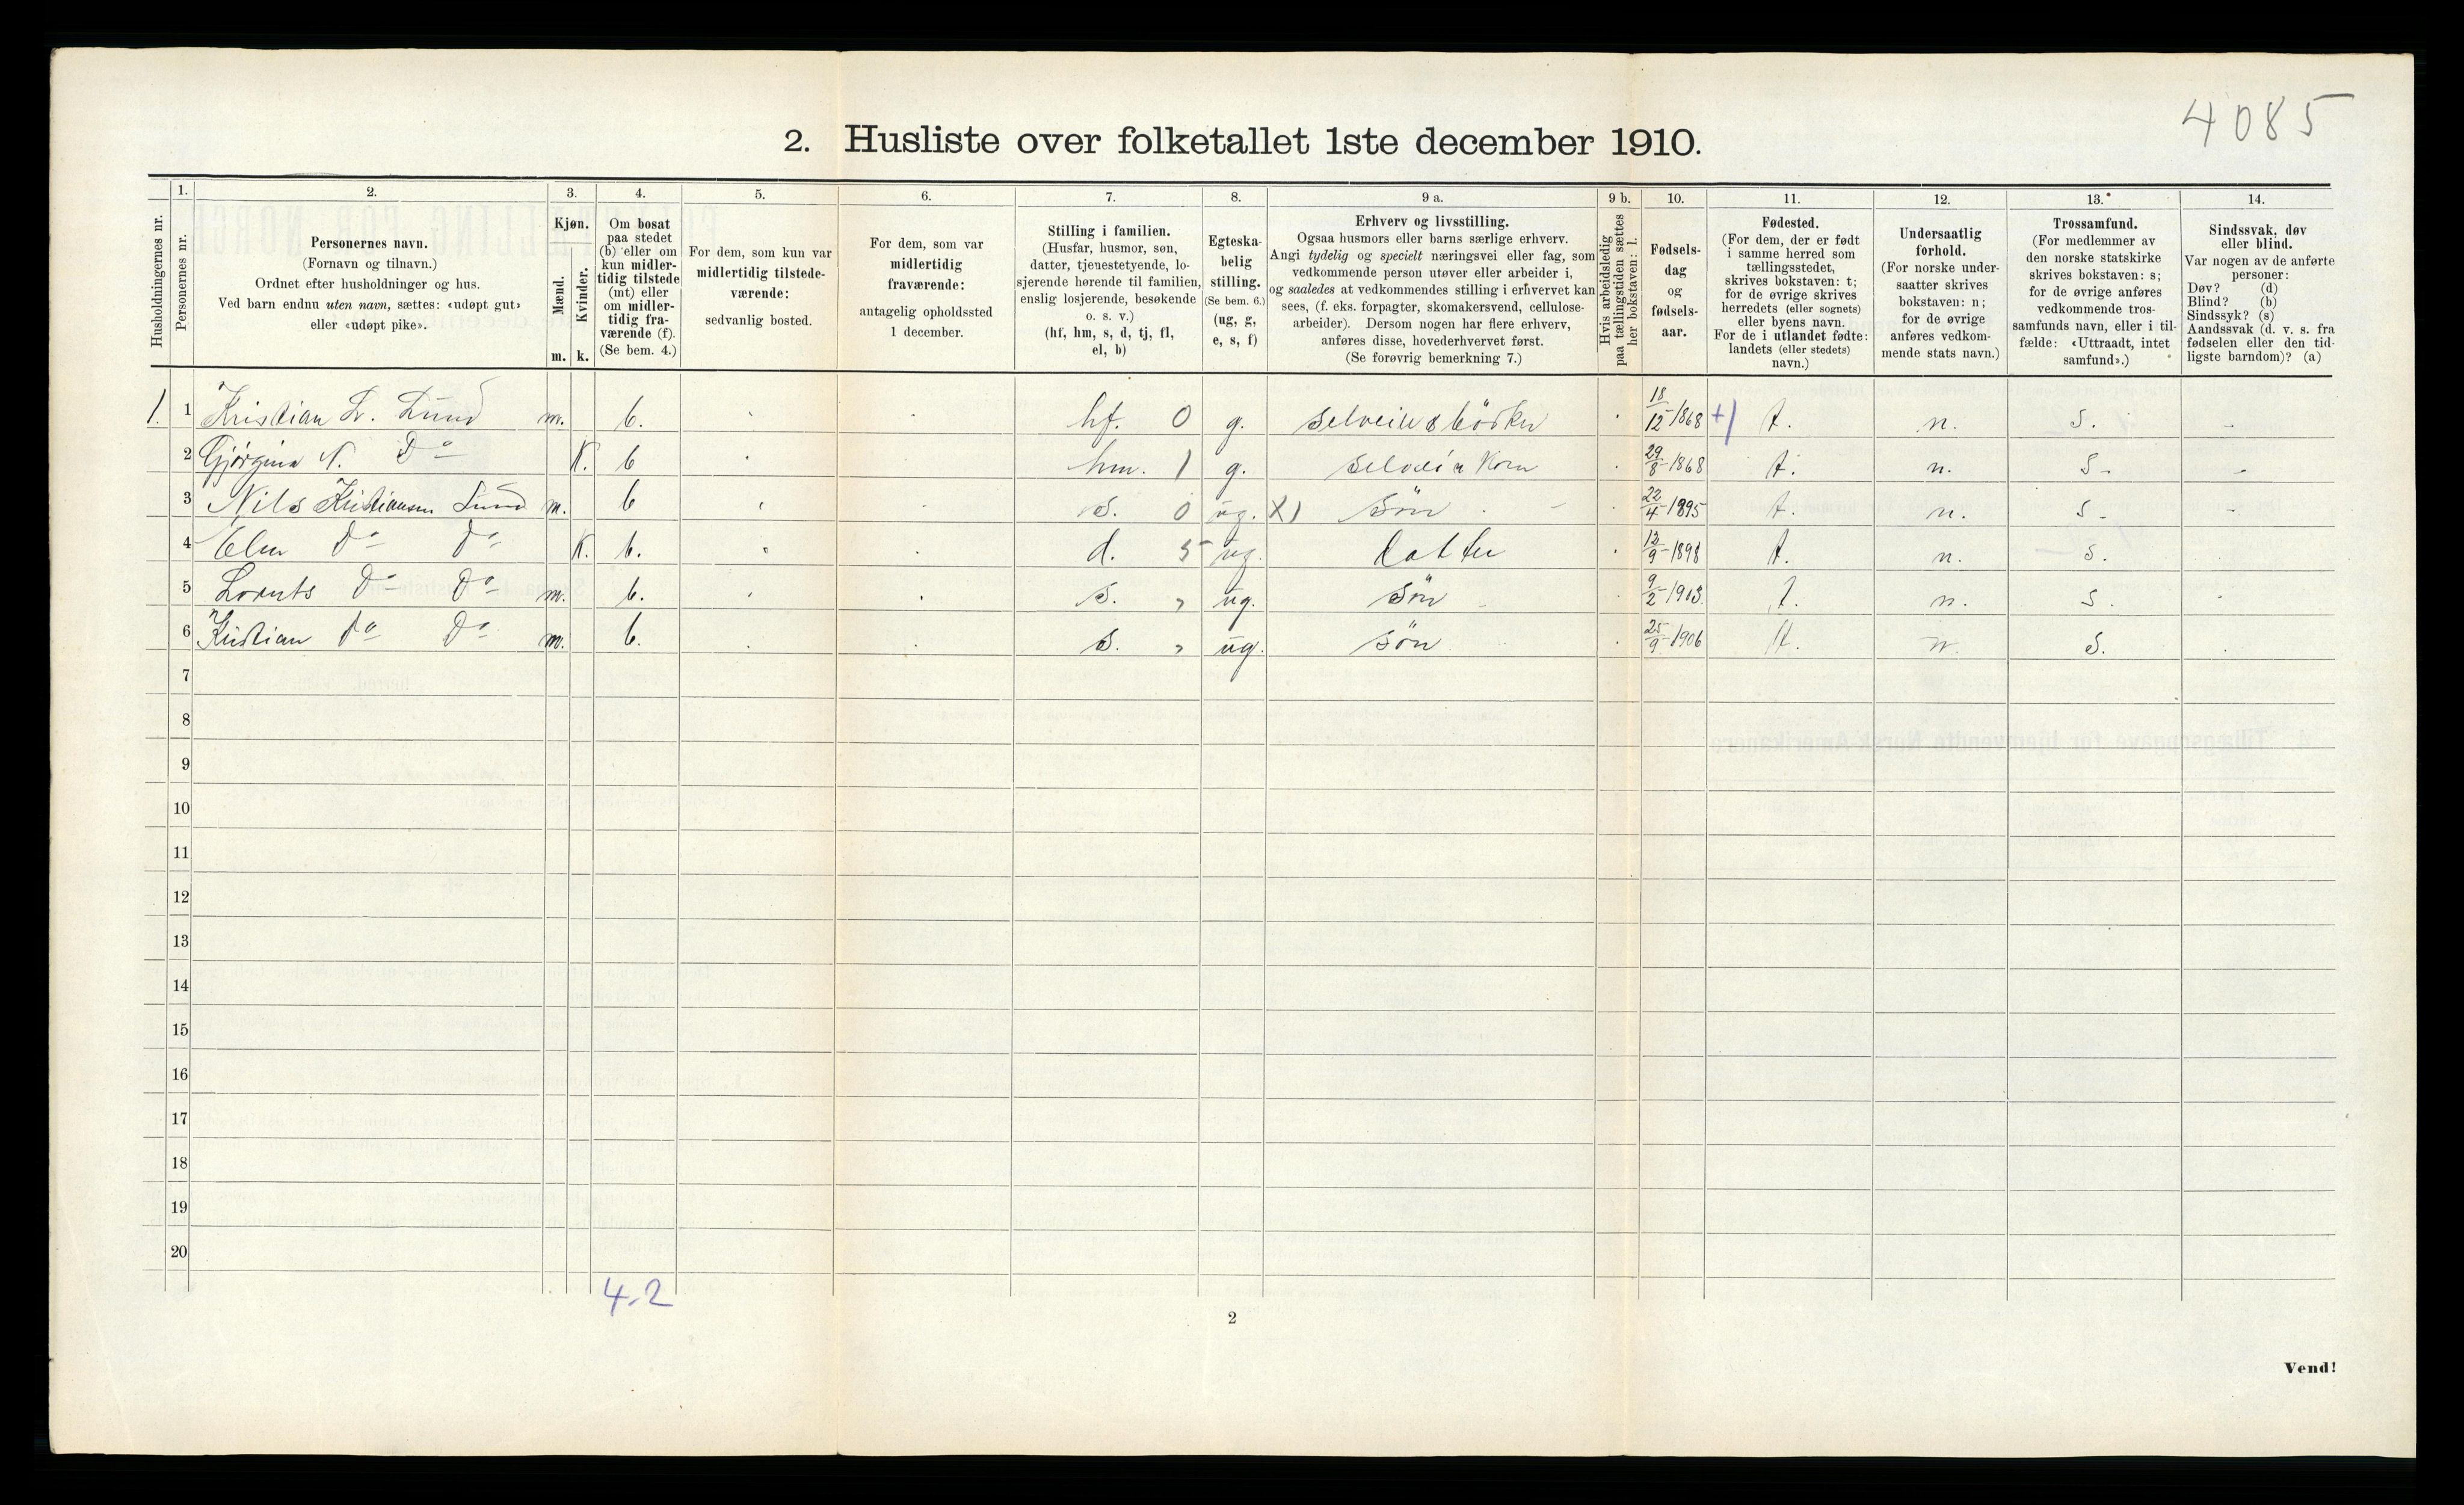 4085
2. Husliste over folketallet 1ste december 1910.
Husholdningernes nr.
1.
Personernes nr.
2.
Personernes navn.
(Fornavn og tilnavn.)
Ordnet efter husholdninger og hus.
Ved barn endnu uten navn, sættes: «udøpt gut»
eller «udøpt pike».
3.
Kjøn.
Mænd.
Kvinder.
m. k.
4.
Om bosat
paa stedet
(b) eller om
kun midler-
tidig tilstede
(mt) eller
om midler-
tidig fra-
værende (f).
(Se bem. 4.)
5.
For dem, som kun var
midlertidig tilstede-
værende:
sedvanlig bosted.
6.
For dem, som var
midlertidig
fraværende:
antagelig opholdssted
1 december.
7.
Stilling i familien.
(Husfar, husmor, søn,
datter, tjenestetyende, lo-
sjerende hørende til familien,
enslig losjerende, besøkende
o. s. v.)
(hf, hm, s, d, tj, fl,
el, b)
8.
Egteska-
belig
stilling.
(Se bem. 6.)
(ug, g,
e, s, f)
9 a.
Erhverv og livsstilling.
Ogsaa husmors eller barns særlige erhverv.
Angi tydelig og specielt næringsvei eller fag, som
vedkommende person utøver eller arbeider i,
og saaledes at vedkommendes stilling i erhvervet kan
sees, (f. eks. forpagter, skomakersvend, cellulose-
arbeider). Dersom nogen har flere erhverv,
anføres disse, hovederhvervet først.
(Se forøvrig bemerkning 7.)
9 b.
Hvis arbeidsledig
paa tællingstiden sættes
her bokstaven: l.
10.
Fødsels-
dag
og
fødsels-
aar.
11.
Fødested.
(For dem, der er født
i samme herred som
tællingsstedet,
skrives bokstaven: t;
for de øvrige skrives
herredets (eller sognets)
eller byens navn.
For de i utlandet fødte:
landets (eller stedets)
navn.)
12.
Undersaatlig
forhold.
(For norske under-
saatter skrives
bokstaven: n;
for de øvrige
anføres vedkom-
mende stats navn.)
13.
Trossamfund.
(For medlemmer av
den norske statskirke
skrives bokstaven: s;
for de øvrige anføres
vedkommende tros-
samfunds navn, eller i til-
fælde: «Uttraadt, intet
samfund».)
14.
Sindssvak, døv
eller blind.
Var nogen av de anførte
personer:
Døv? (d)
Blind? (b)
Sindssyk? (s)
Aandssvak (d. v. s. fra
fødselen eller den tid-
ligste barndom)? (a)
1. 1 Kristian L. Lund m. b. hf. 0 g. 18/12-1868 +) t. n. s.
2 Gjørgina N. Do K. b hm. 1 g. 29/8-1868 t. n. s.
3 Nils Kristiansen Lund m. b s. 0 ug. X) Sön 22/4-1895 t. n. s.
4 Do Do K. b. d. 5 ug. Datter 9-1898 t. n. s.
5 Lornts Do Do m. b. s. " ug. Sön 9/2-1903 t. n. s.
6 Kristian Do Do m. b. s. " ug. Sön 25/9-1906 t. n. s.
7
8
9
10
11
12
13
14
15
16
17
18
19
20
4-2
2
Vend!